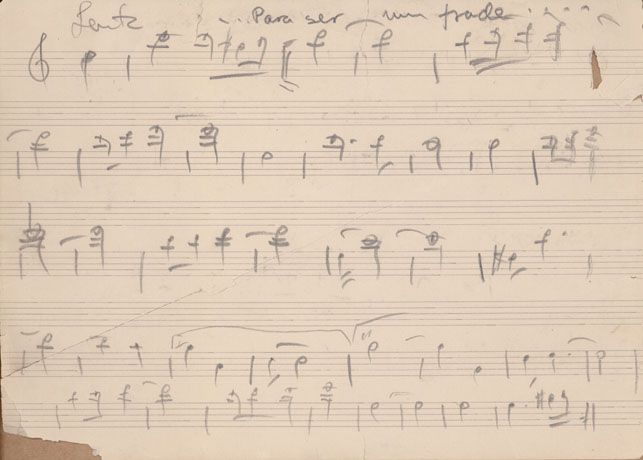 Lento ... Para ser um frade ....